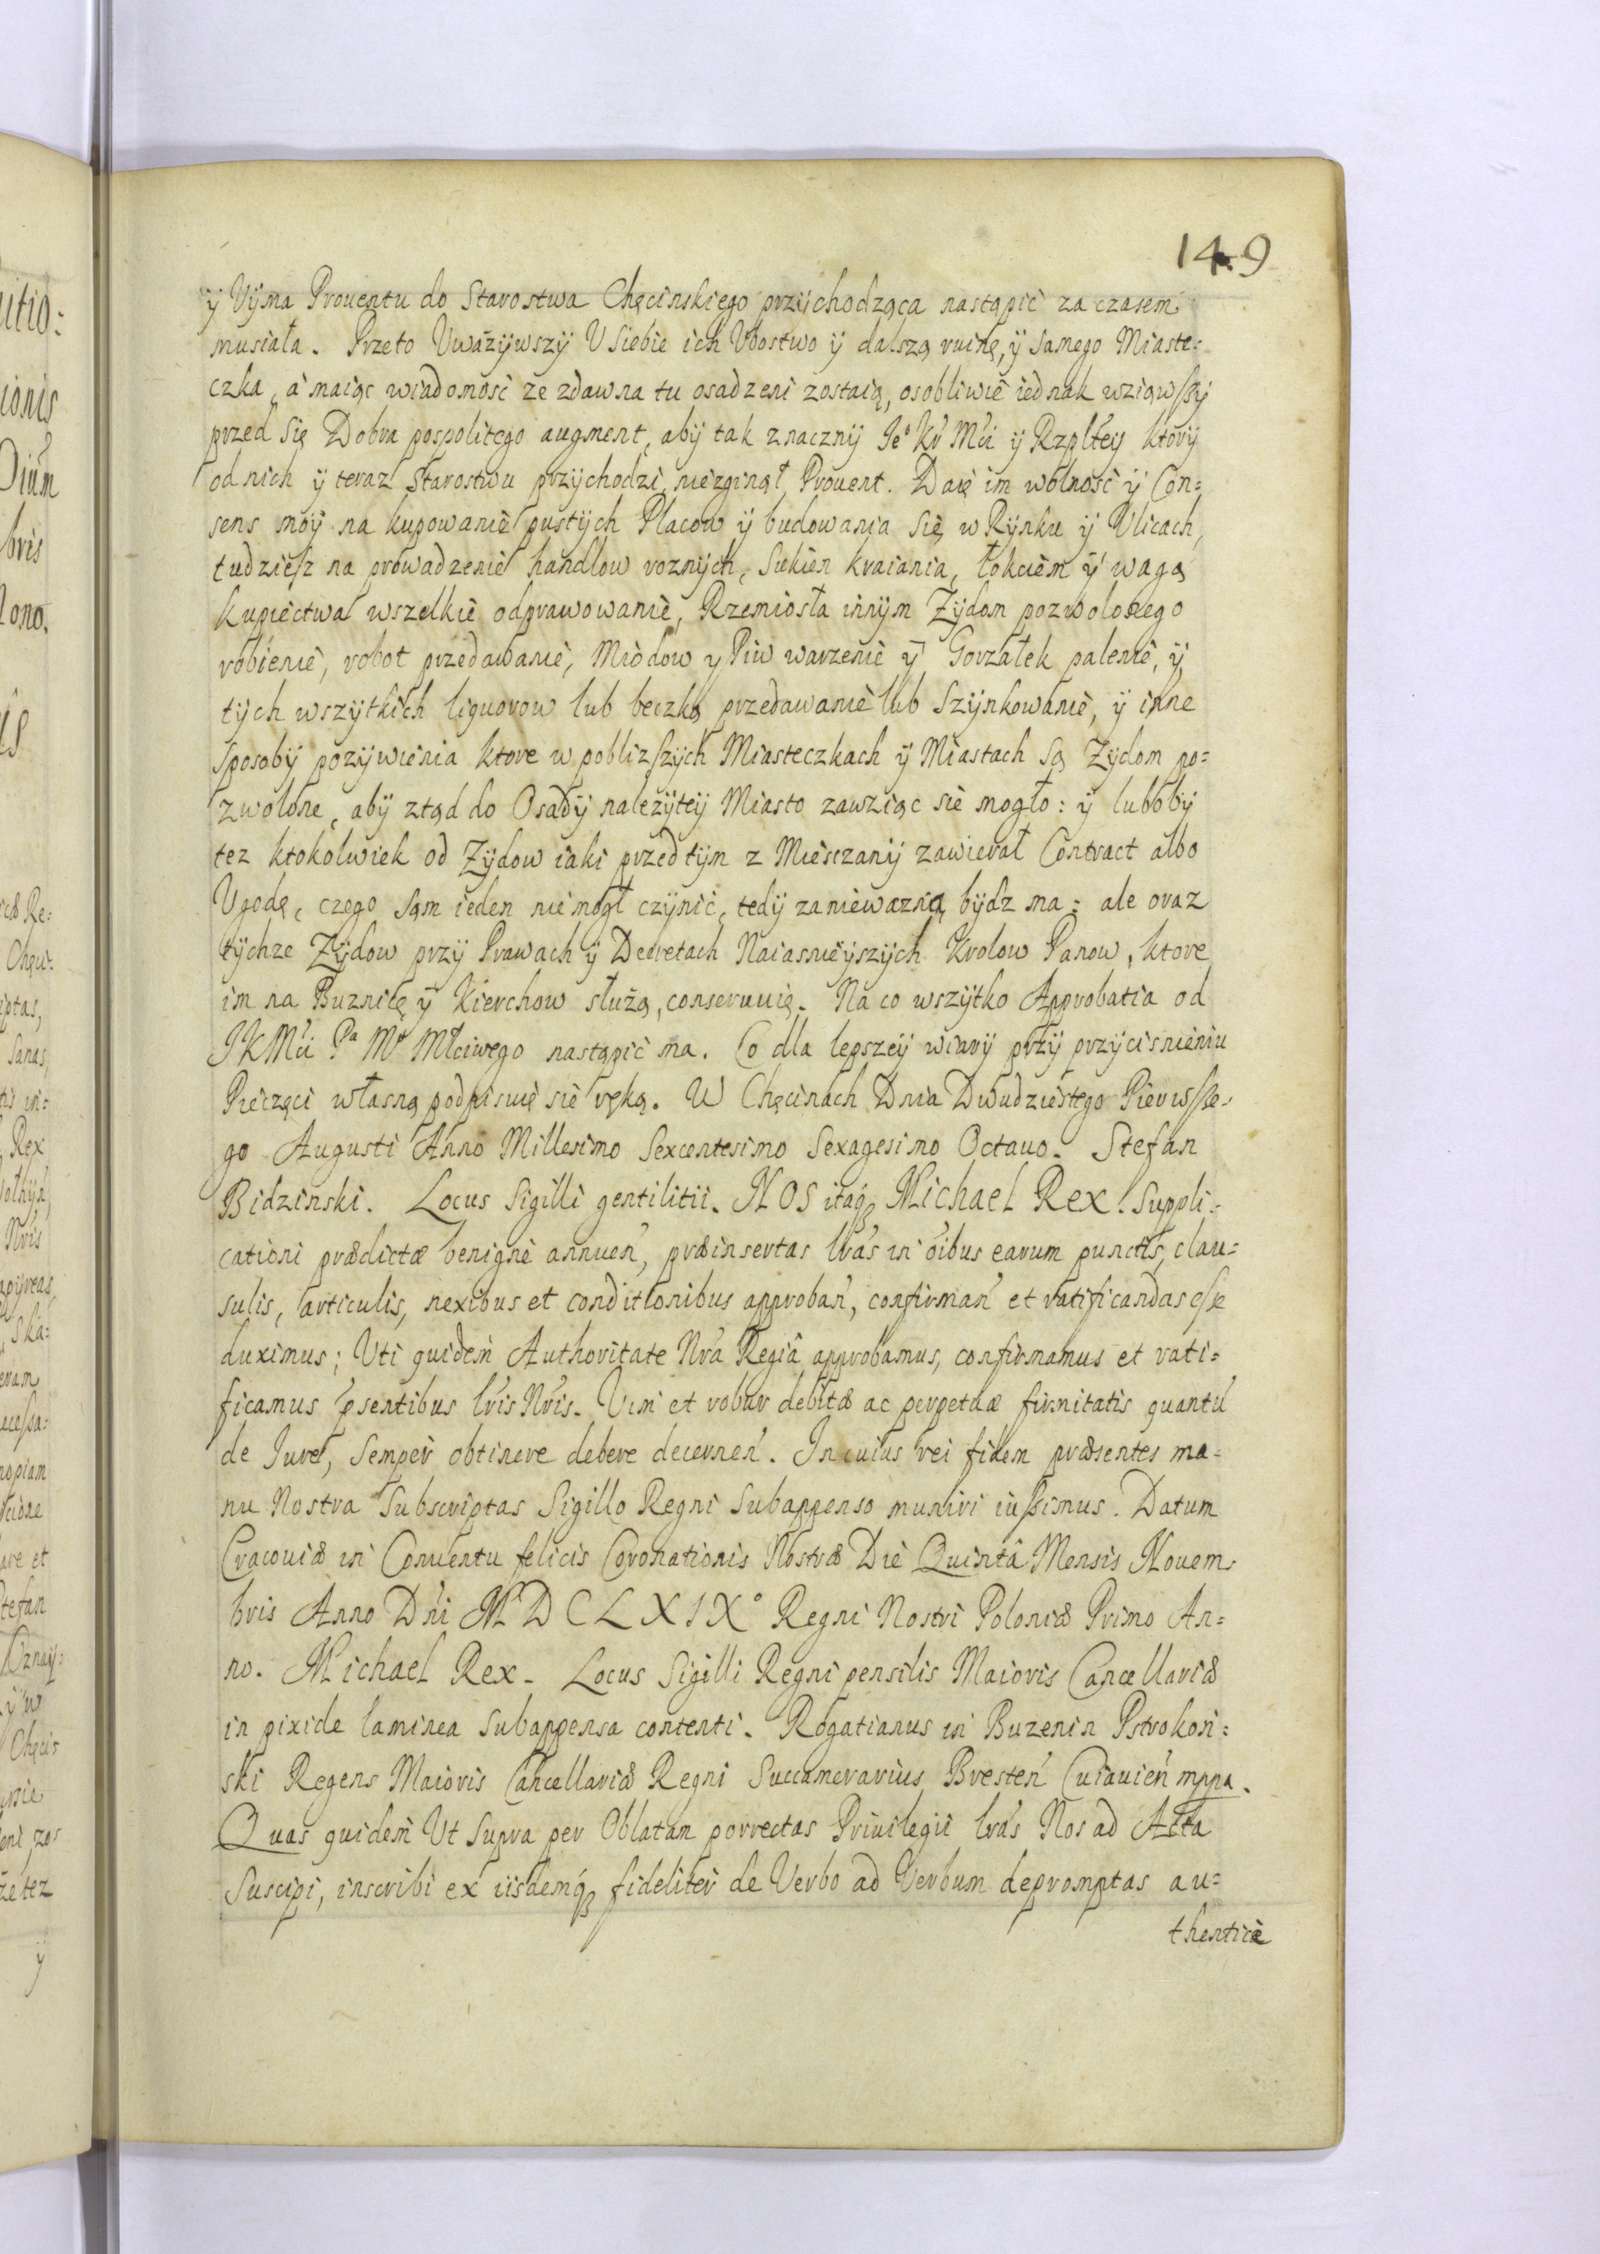 149
ÿ Vÿma Prouentu do Starostwa Chęcinskiego przÿchodząca nastąpić za czasem
musiała. Przeto Vwazÿwszÿ V Siebie ich Vbostwo ÿ dalszą ruinę, ÿ Samego Miaste=
czka, á maiąc wiadomość ze zdawna tu osadzeni zostaią, osobliwie iednak wziąwszÿ
przed Się Dobra pospolitego augment, abÿ tak znacznÿ Jeº Kr Mći ÿ Rzpltey ktorÿ
od nich ÿ teraz Starostwu przÿchodzi, niezginął Prouent. Daię im wolność ÿ Con=
sens moÿ na kupowanie pustÿch Placow ÿ budowania Się w Rÿnku ÿ Vlicach,
tudziesz na prowadzenie handlow roznÿch, Sukien kraiania, łokciem ÿ wagą
kupiectwa wszelkie odprawowanie, Rzemiosła innÿm Zÿdom pozwolonego
robienie, robot przedawanie, Miodow y Piw warzenie ÿ Gorzałek palenie, ÿ
tÿch wszÿtkich liquorow lub beczką przedawanie lub Szÿnkowanie, ÿ inne
Sposobÿ pozÿwienia ktore w poblizszÿch Miasteczkach ÿ Miastach Są Zÿdom po=
zwolone, abÿ ztąd do Osadÿ nalezÿteÿ Miasto zawziąc sie mogło: ÿ lubobÿ
tez ktokolwiek od Zÿdow iaki przedtÿm z Miesczanÿ zawierał Contract albo
Vgodę, czego sąm ieden niemogł czÿnić, tedÿ zaniewazną bÿdz ma: ale oraz
tÿchze Zÿdow przÿ Prawach ÿ Decretach Naiasnieÿszÿch Krolow Panow, ktore
im na Buznicę ÿ Kierchow służą, conseruuię. Na co wszÿtko Approbatia od
JKMći Pª Mº Młciwego nastąpić ma. Co dla lepszeÿ wiarÿ przÿ przÿcisnieniu
Pieczęci własną podpisuię się ręką. W Chęcinach Dnia Dwudziestego Pierwsze=
go Augusti Anno Millesimo Sexcentesimo Sexagesimo Octauo. Stefan
Bidzinski. Locus Sigilli gentilitii. NOS itaq₃ Michael Rex. Suppli=
cationi prædictæ benignè annuen̄, præinsertas lrãs in oībus earum punctis, clau=
sulis, articulis, nexibus et conditionibus approban̄, confirman̄ et ratificandas esse
duximus; Vti quidem Authoritate Nrã Regiâ approbamus, confirmamus et rati=
ficamus p̄sentibus lrĩs Nrĩs. Vim et robur debitæ ac perpetuæ firmitatis quantū
de Jure, Semper obtinere debere decernen̄. In cuius rei fidem præsentes ma=
nu Nostra Subscriptas Sigillo Regni Subappenso muniri iussimus. Datum
Cracouiæ in Conuentu felicis Coronationis Nostræ Die Quintâ Mensis Nouem=
bris Anno Dnĩ MDCLXIXº Regni Nostri Poloniæ Primo An=
no. Michael Rex. Locus Sigilli Regni pensilis Maioris Cancellariæ
in pixide laminea Subappensa contenti. Rogatianus in Buzenin Pstrokoń=
ski Regens Maioris Cancellariæ Regni Succamerarius Bresten̄ Cuiauien̄ mppa.
Quas quidem Vt Supra per Oblatam porrectas Priuilegii lrãs Nos ad Acta
Suscipi, inscribi ex iisdemq₃ fideliter de Verbo ad Verbum depromptas au=
thenticè